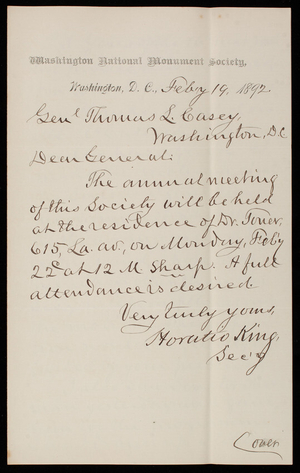 Washington National Monument Society,
Washington, D. C., Feby 19, 1892
Genl Thomas L. Casey,
Washington, D.C
Dear General:
The annual meeting
of this Society will be held
at the residence of Dr. Toner,
615, La. av, on Monday, Feby
22d at 12 M. sharp. A full
attendance is desired
Very truly yours,
Horatio King,
Sec'y
(over